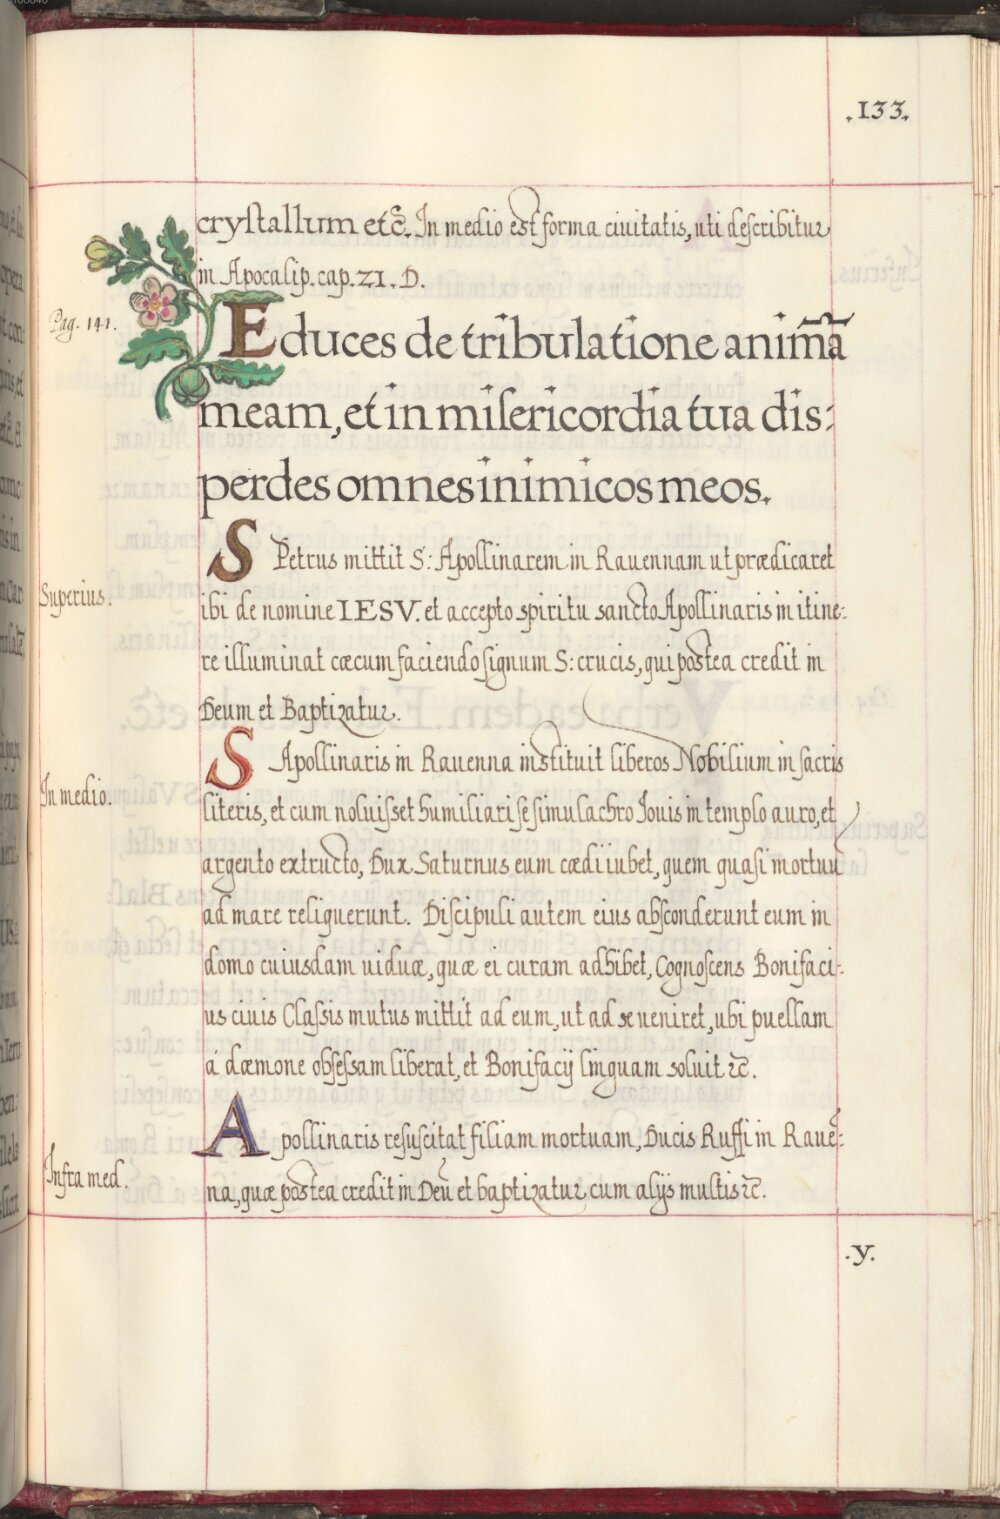 .133.
crystallum etc̃. In medio est forma ciuitatis, uti describitur
in Apocalip. cap. 21. D.
Pag. 141.
Educes de tribulatione anim̃ã
meam, et in misericordia tua dis:
perdes omnes inimicos meos.
S Petrus mittit S: Apollinarem in Rauennam ut prædicaret
Superius.
ibi de nomine IESV. et accepto spiritu sancto Apollinaris in itine:
re illuminat cœcum faciendo signum S: crucis, qui postea credit in
Deum et Baptizatur.
S Apollinaris in Rauenna instituit liberos Nobilium in sacris
In medio.
literis, et cum noluisset humiliari se simulachro Jouis in templo auro, et
argento extructo, Dux Saturnus eum cædi iubet, quem quasi mortuũ
ad mare reliquerunt. Discipuli autem eius absconderunt eum in
domo cuiusdam uiduæ, quæ ei curam adhibet, Cognoscens Bonifaci:
us ciuis Classis mutus mittit ad eum, ut ad se ueniret, ubi puellam
á dæmone obsessam liberat, et Bonifacij linguam soluit ⁊c̃.
Apollinaris resuscitat filiam mortuam, Ducis Ruffi in Raue:
Infra med.
na, quæ postea credit in Deũ et baptizatur cum alijs multis ⁊c̃.
.y.